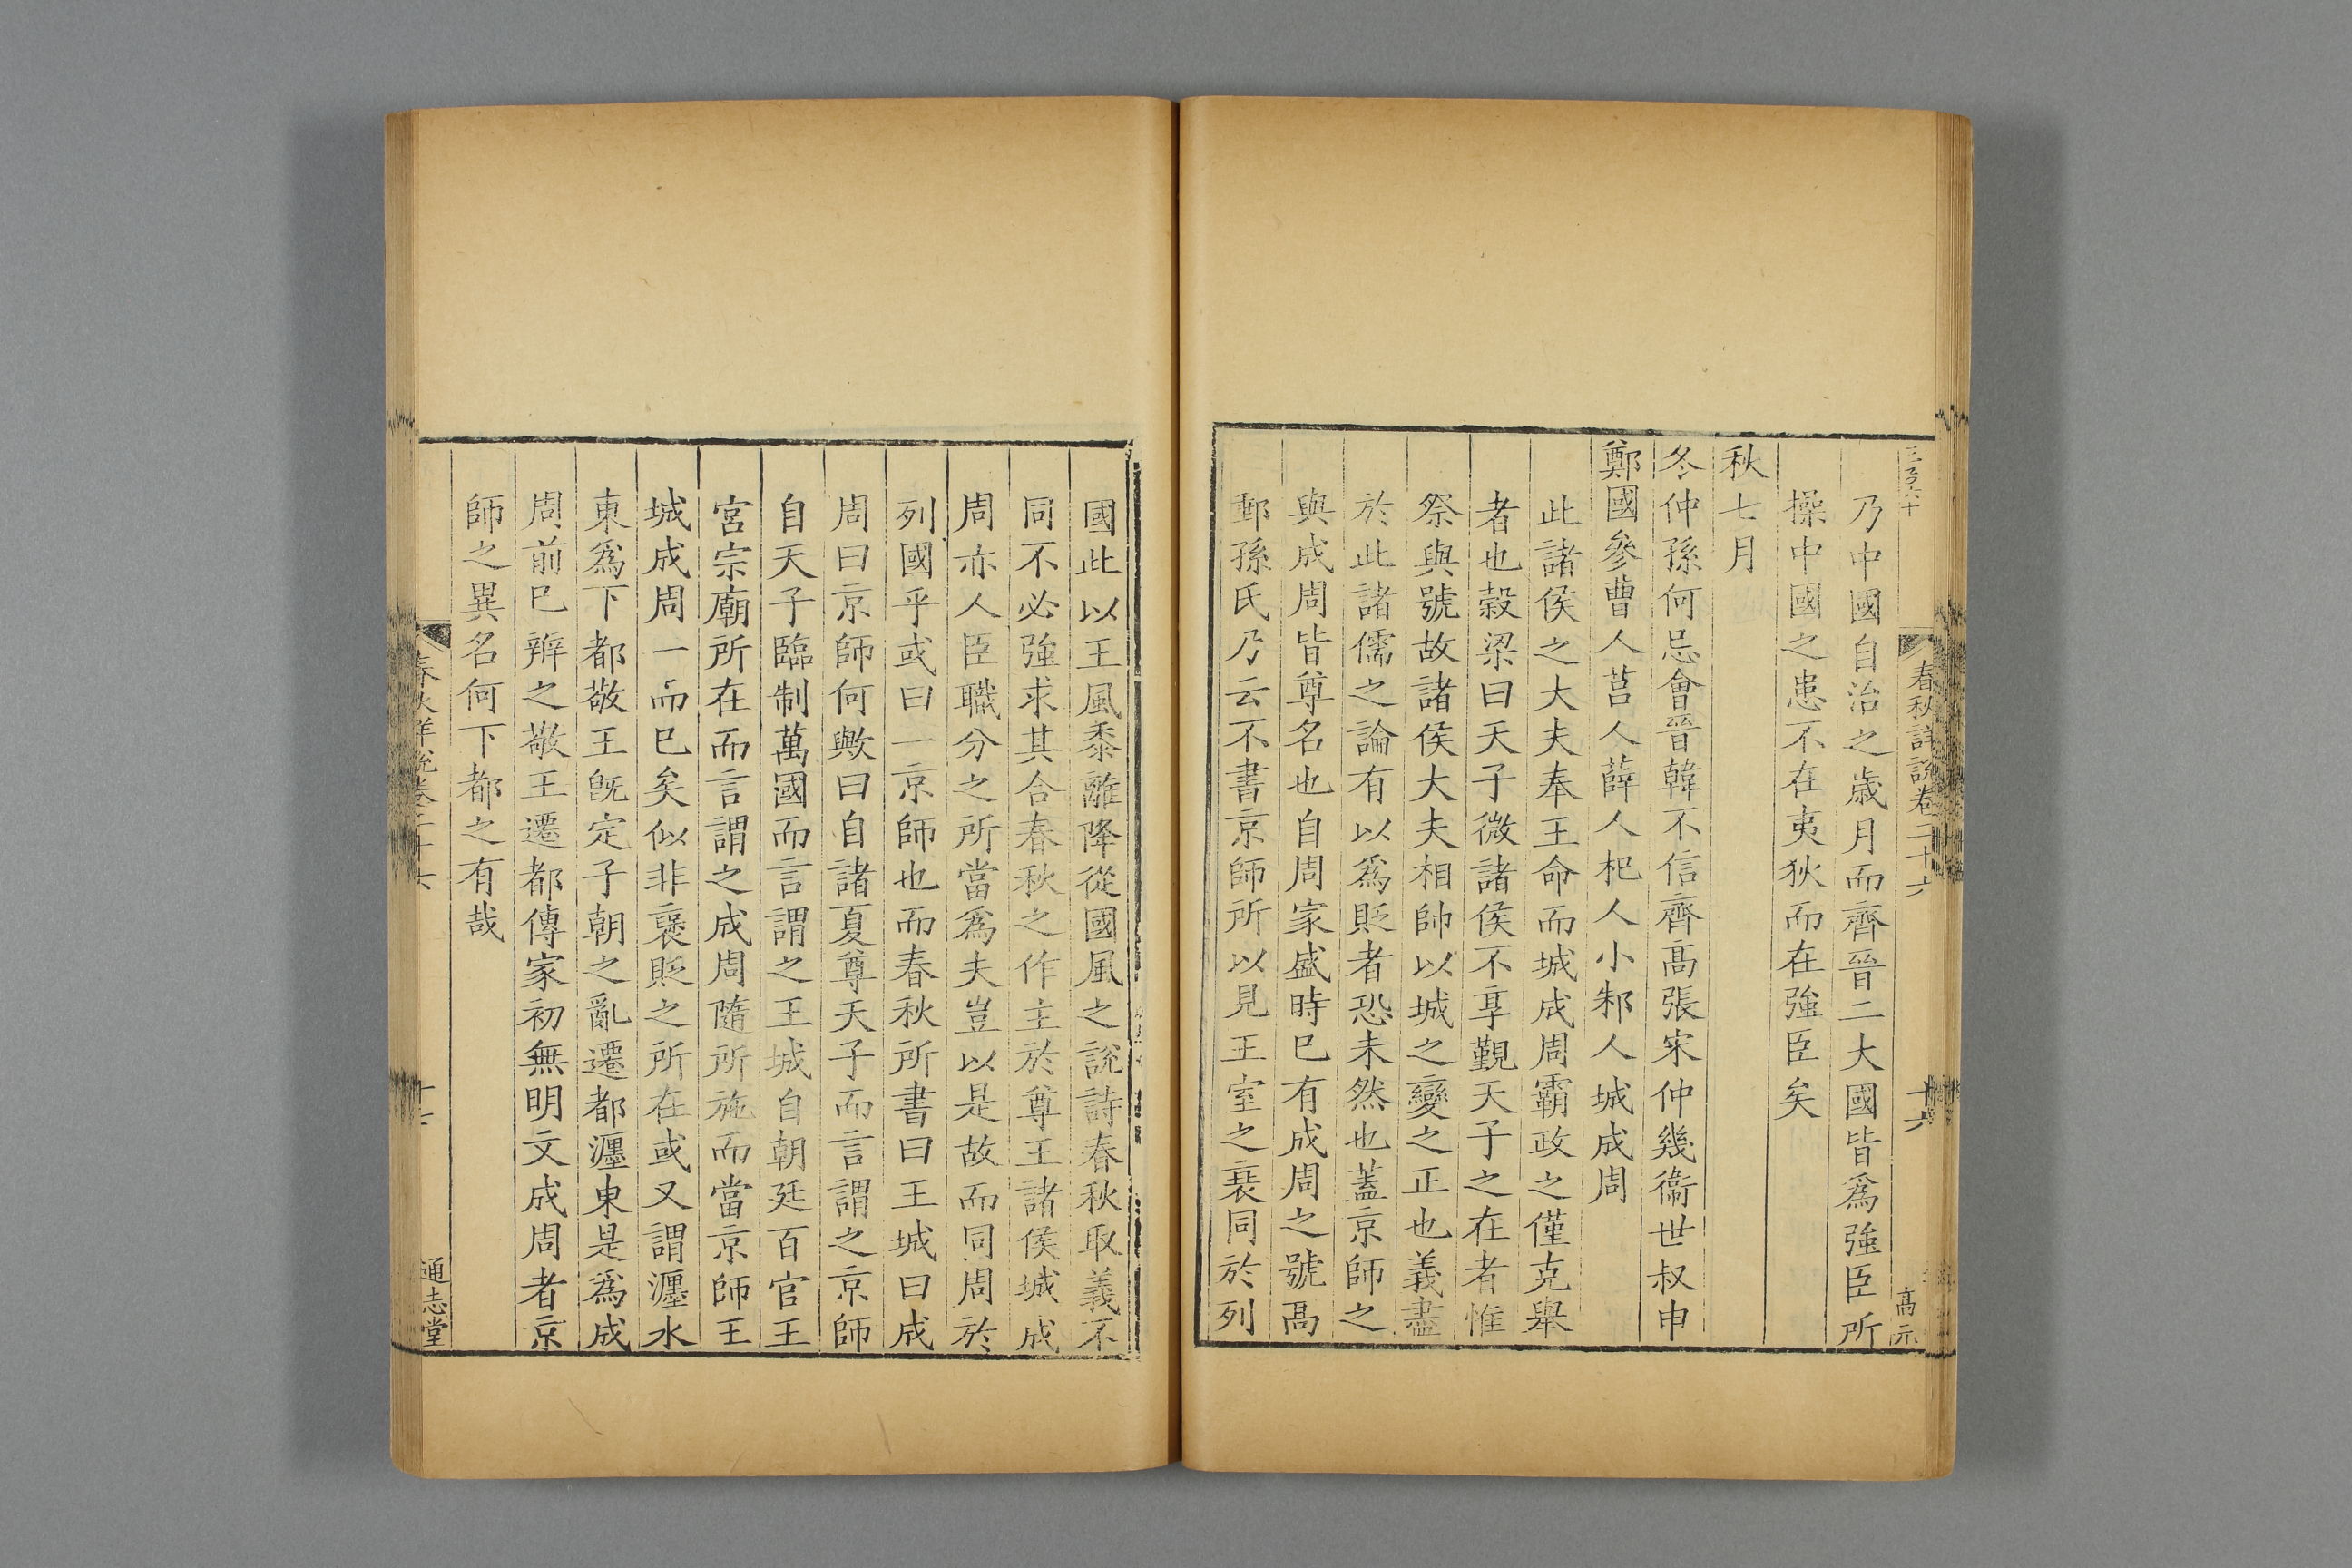 三百六十
春秋詳說卷二十六
十六
高示
乃中國自治之歲月而齊晉二大國皆爲強臣所
操中國之患不在夷狄而在強臣矣
秋七月
冬仲孫何忌會晉韓不信齊高張宋仲幾衞世叔申
鄭國參曹人莒人薛人杞人小邾人城成周
此諸侯之大夫奉王命而城成周霸政之僅克舉
者也榖梁曰天子微諸侯不享覲天子之在者惟
祭與號故諸侯大夫相帥以城之變之正也義盡
於此諸儒之論有以爲貶者恐未然也蓋京師之
與成周皆尊名也自周家盛時巳有成周之號髙
郵孫氏乃云不書京師所以見王室之衰同於列
國此以王風黍離降從國風之說詩春秋取義不
同不必強求其合春秋之作主於尊王諸侯城成
周亦人臣職分之所當爲夫豈以是故而同周於
列國乎或曰一京師也而春秋所書曰王城曰成
周曰京師何歟曰自諸夏尊天子而言謂之京師
自天子臨制萬國而言謂之王城自朝廷百官王
宮宗廟所在而言謂之成周隨所施而當京師王
城成周一而巳矣似非褒貶之所在或又謂瀍水
東爲下都敬王旣定子朝之亂遷都瀍東是爲成
周前巳辨之敬王遷都傳家初無明文成周者京
師之異名何下都之有哉
春秋詳說卷二十六
十七
通志堂